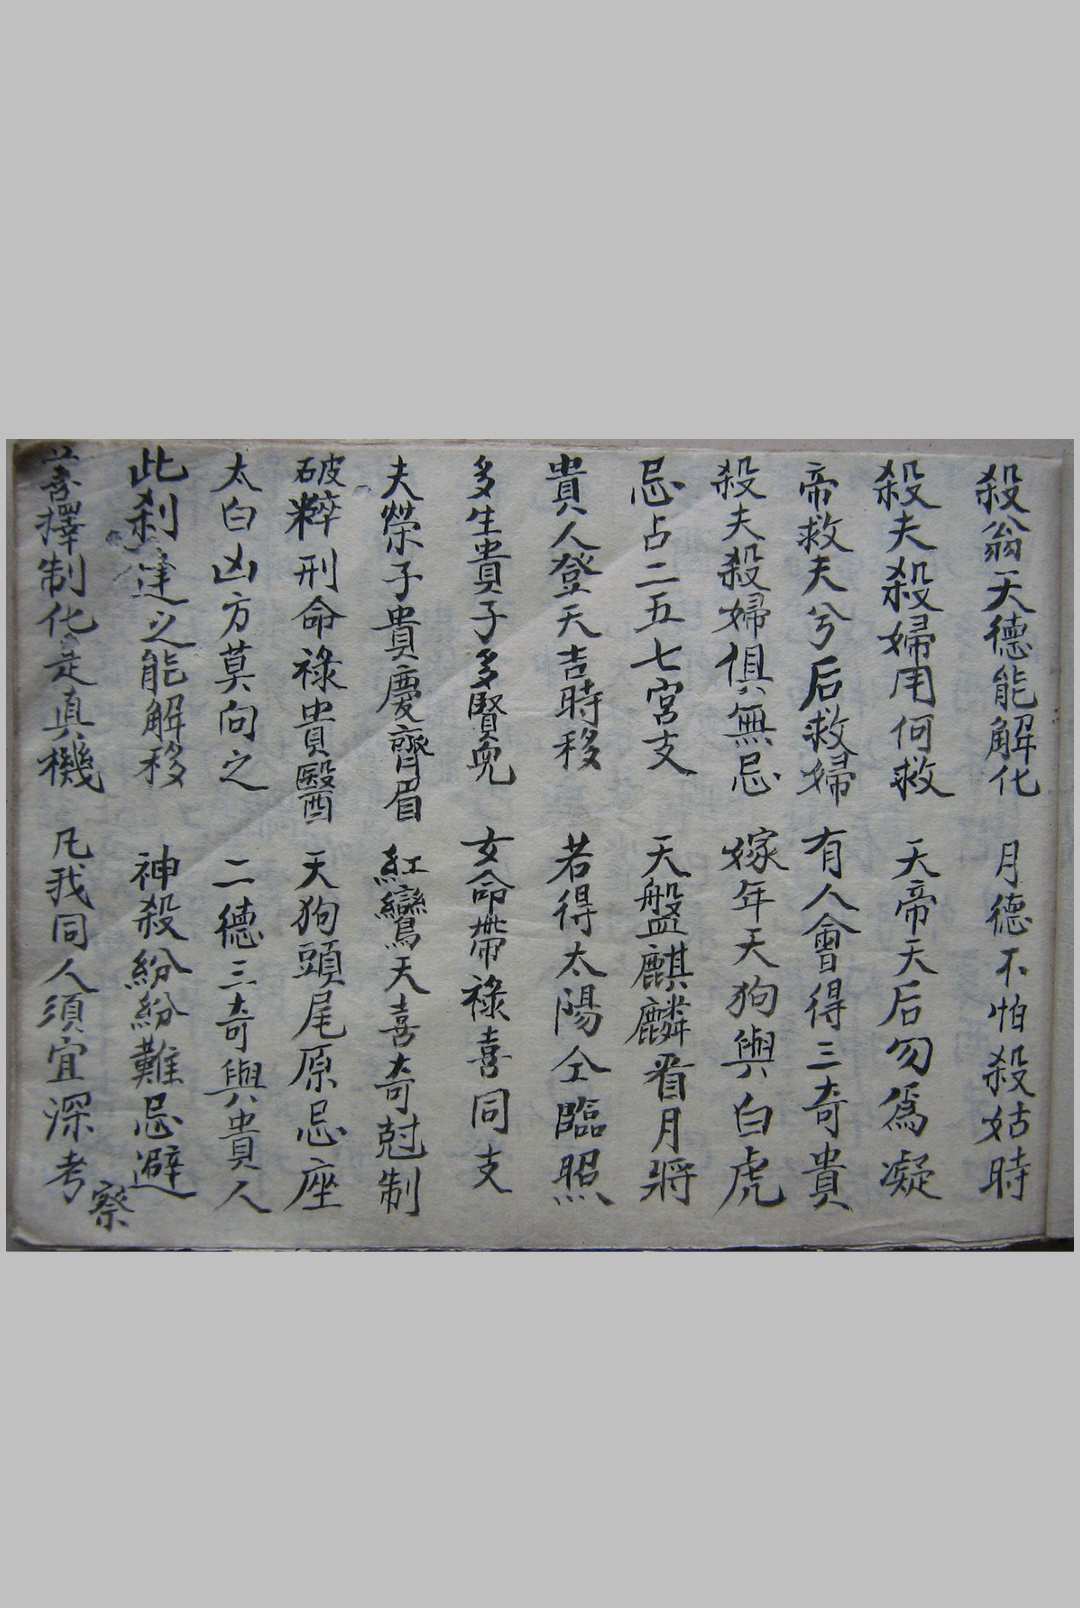 殺翁天德能解化　月德不怕殺姑時
殺夫殺婦用何救　天帝天后勿為凝
帝救夫兮后救婦　有人會得三奇貴
殺夫殺婦俱無忌　嫁年天狗與白虎
忌占二五七宮支　天盤麒麟看月將
貴人登天吉時移　若得太陽仝臨照
多生貴子多賢兒　女命帶祿喜同支
夫榮子貴慶齊眉　紅鸞天喜奇尅制
破粹刑命祿貴醫　天狗頭尾原忌座
太白凶方莫向之　二德三奇與貴人
此刹達之能解移　神殺紛紛難忌避
善擇制化是真機　凡我同人須宜深考
察